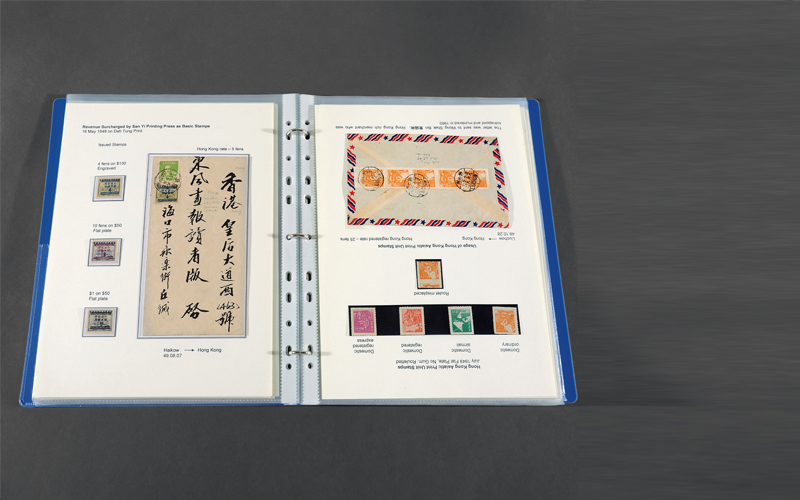 Revenue Surcharged by San Yi Printing Press as Basic Stamps
16 May 1949 on Dah Tung Print
Issued Stamps
Hong Kong rate – 5 fens
4 fens on $100
Engraved
10 fens on $50
Flat plate
$1 on $50
Flat plate
香港皇后大道西(463)號
東風畫報讀者版 啓
海口市
Hoikow → Hong Kong
49.08.07
Hong Kong Asiatic Print Unit Stamps
July 1949 Flat Plate, No Gum, Rouletted
Domestic
ordinary
Domestic
airmail
Domestic
registered
Domestic
registered
express
Roulet misplaced
Usage of Hong Kong Asiatic Print Unit Stamps
Liuchow → Hong Kong
49.10.25
Hong Kong registered rate – 25 fens
This letter was sent to Wong Shek Bin
Hong Kong rich merchant who was
kidnapped and murdered in 1960